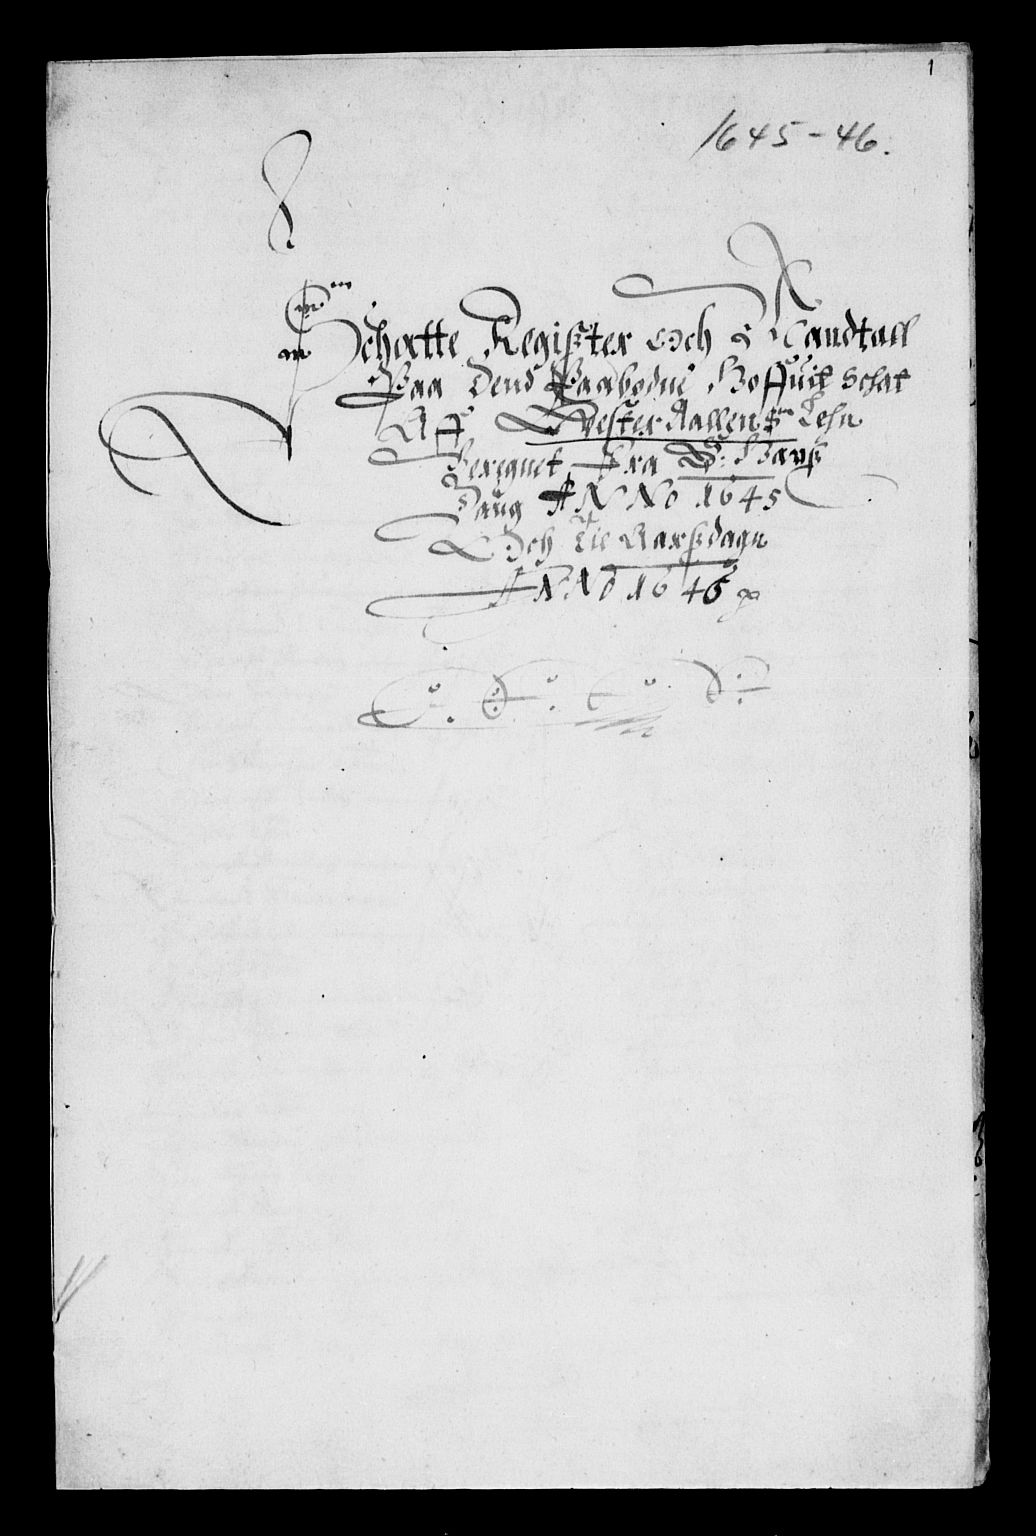 1
1645-46.
Schatte Register Och Mandtall
Paa Dend Paabodne Koffuit Schat
Aff Vester Aallens Lehn
Beregnet Fra S: Hanß
Daug ANNO 1645
Och Till Aarßdagn
ANNO 1646